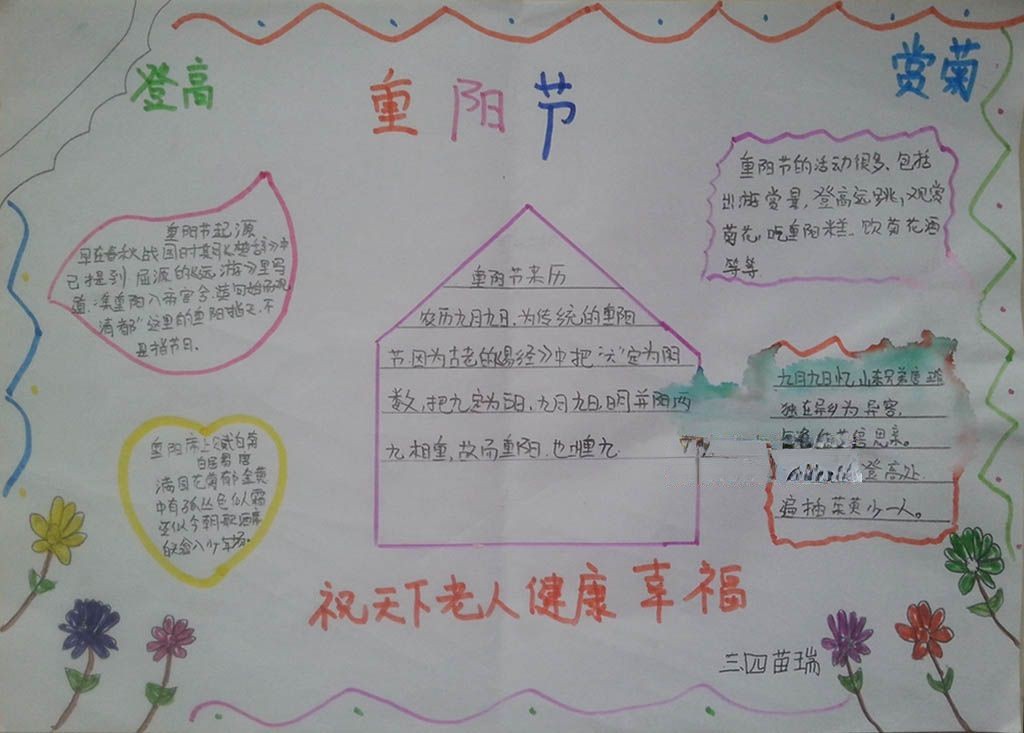 登高
重阳节
赏菊
重阳节起源
早在春秋战国时期《楚辞》中
已提到屈原的《远游》里写
道:集重阳入帝宫兮,造旬始而观
清都"这里的重阳指天,不
是指节日。
重阳节的活动很多,包括
出游赏景,登高远眺,观赏
菊花,吃重阳糕、饮菊花酒
等等
重阳节来历
农历九月九日,为传统的重阳
节因为古老的《易经》中把"六"定为阴
数,把九定为阳,九月九日,日月并阳两
九相重,故而重阳,也
重阳席上赋白菊
白居易 唐
满园花菊郁金黄
中有孤丛色似霜
还似今朝歌酒席
白头翁入少年场。
九月九日忆山东兄弟
独在异乡为异客,
思亲。
登高处
遍插茱萸少一人。
祝天下老人健康幸福
三四苗瑞